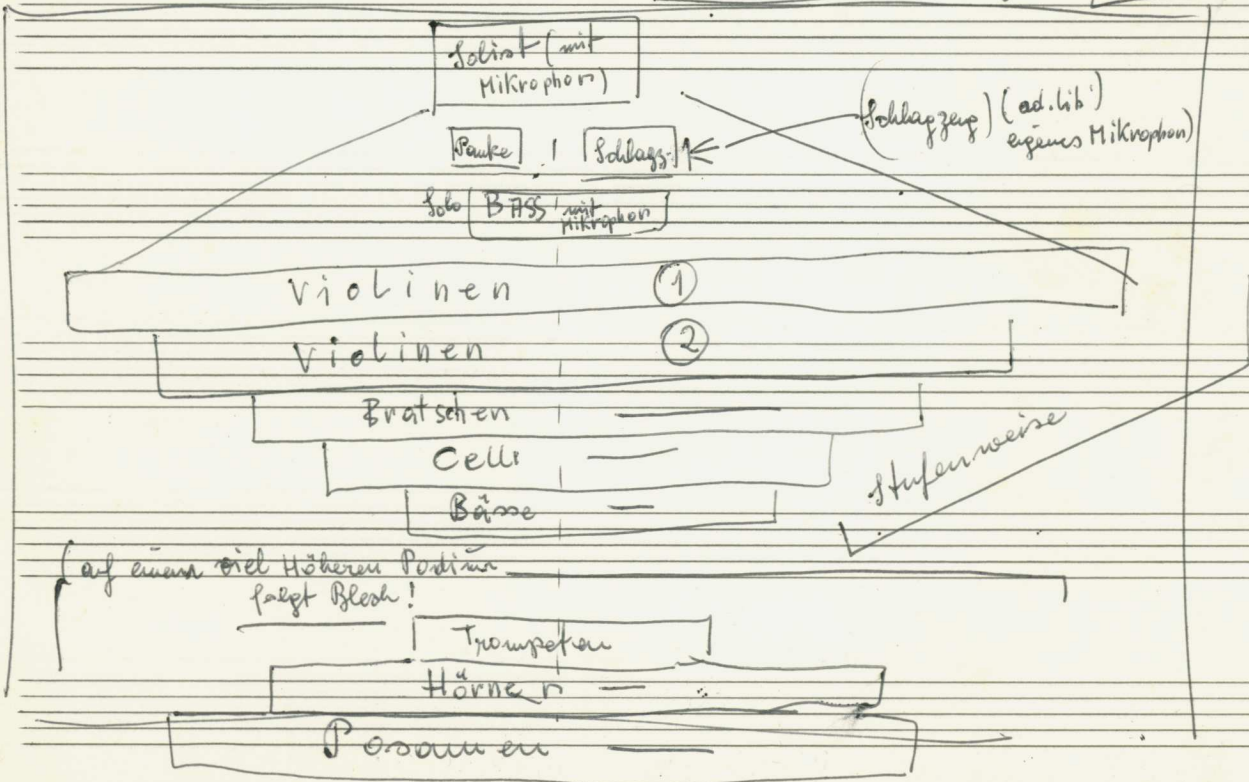 Solist (mit
Mikrophon)
(Schlagzeug) (ad. lib.)
eigenes Mikrophon)
Pauke ! Schlagz.
Solo BASS mit
Mikrophon
Violinen 1
Violinen 2
Bratschen
Celli
Bässe
Stufenweise
(auf einem viel Höheren Podium
folgt Blech!
Trompeten
Hörner
Posaunen